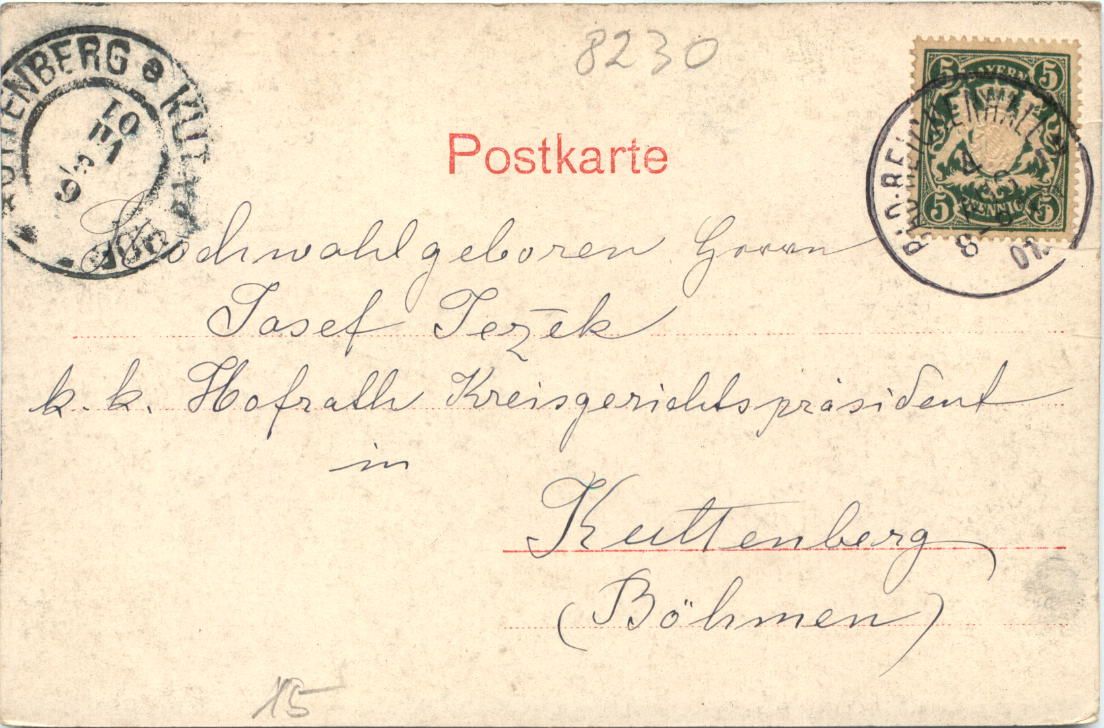 8230
KUTTENBERG
9
VII
01
BAYERN
5 5
5 PFENNIG 5
BAD-REICHENHALL
8
01
Postkarte
Hochwahlgeboren Herrn
Josef Ježek
k. k. Hofrath Kreisgerichtspräsident
in
Kuttenberg
(Böhmen)
15